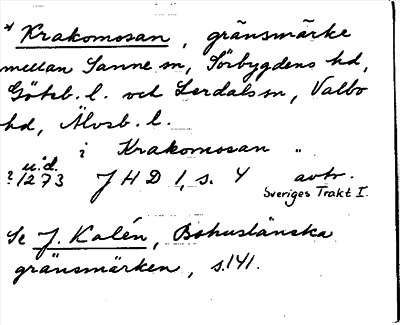 * Krakomosan, gränsmärke
mellan Sanne sn, Sörbygdens hd,
Göteb. l. och Lerdals sn, Valbo
hd, Älvsb. l.
i Krakomosan "
u.d.
? 1273 JHD 1, s. 4 avtr.
Sveriges Trakt I.
Se J. Kalén, Bohuslänska
gränsmärken, s. 141.